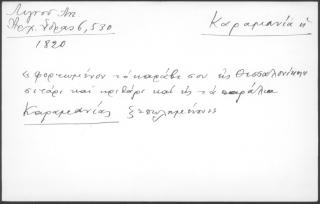 Λιγνού Αν.
Αρχ. Ύδρας 6, 530
1820
Καραμανία ἡ
φορτωμένον τὸ καράβι σου εἰς Θεσσαλονίκην
σιτάρι καὶ κριθάρι καὶ εἰς τὰ παράλια
Καραμανίας